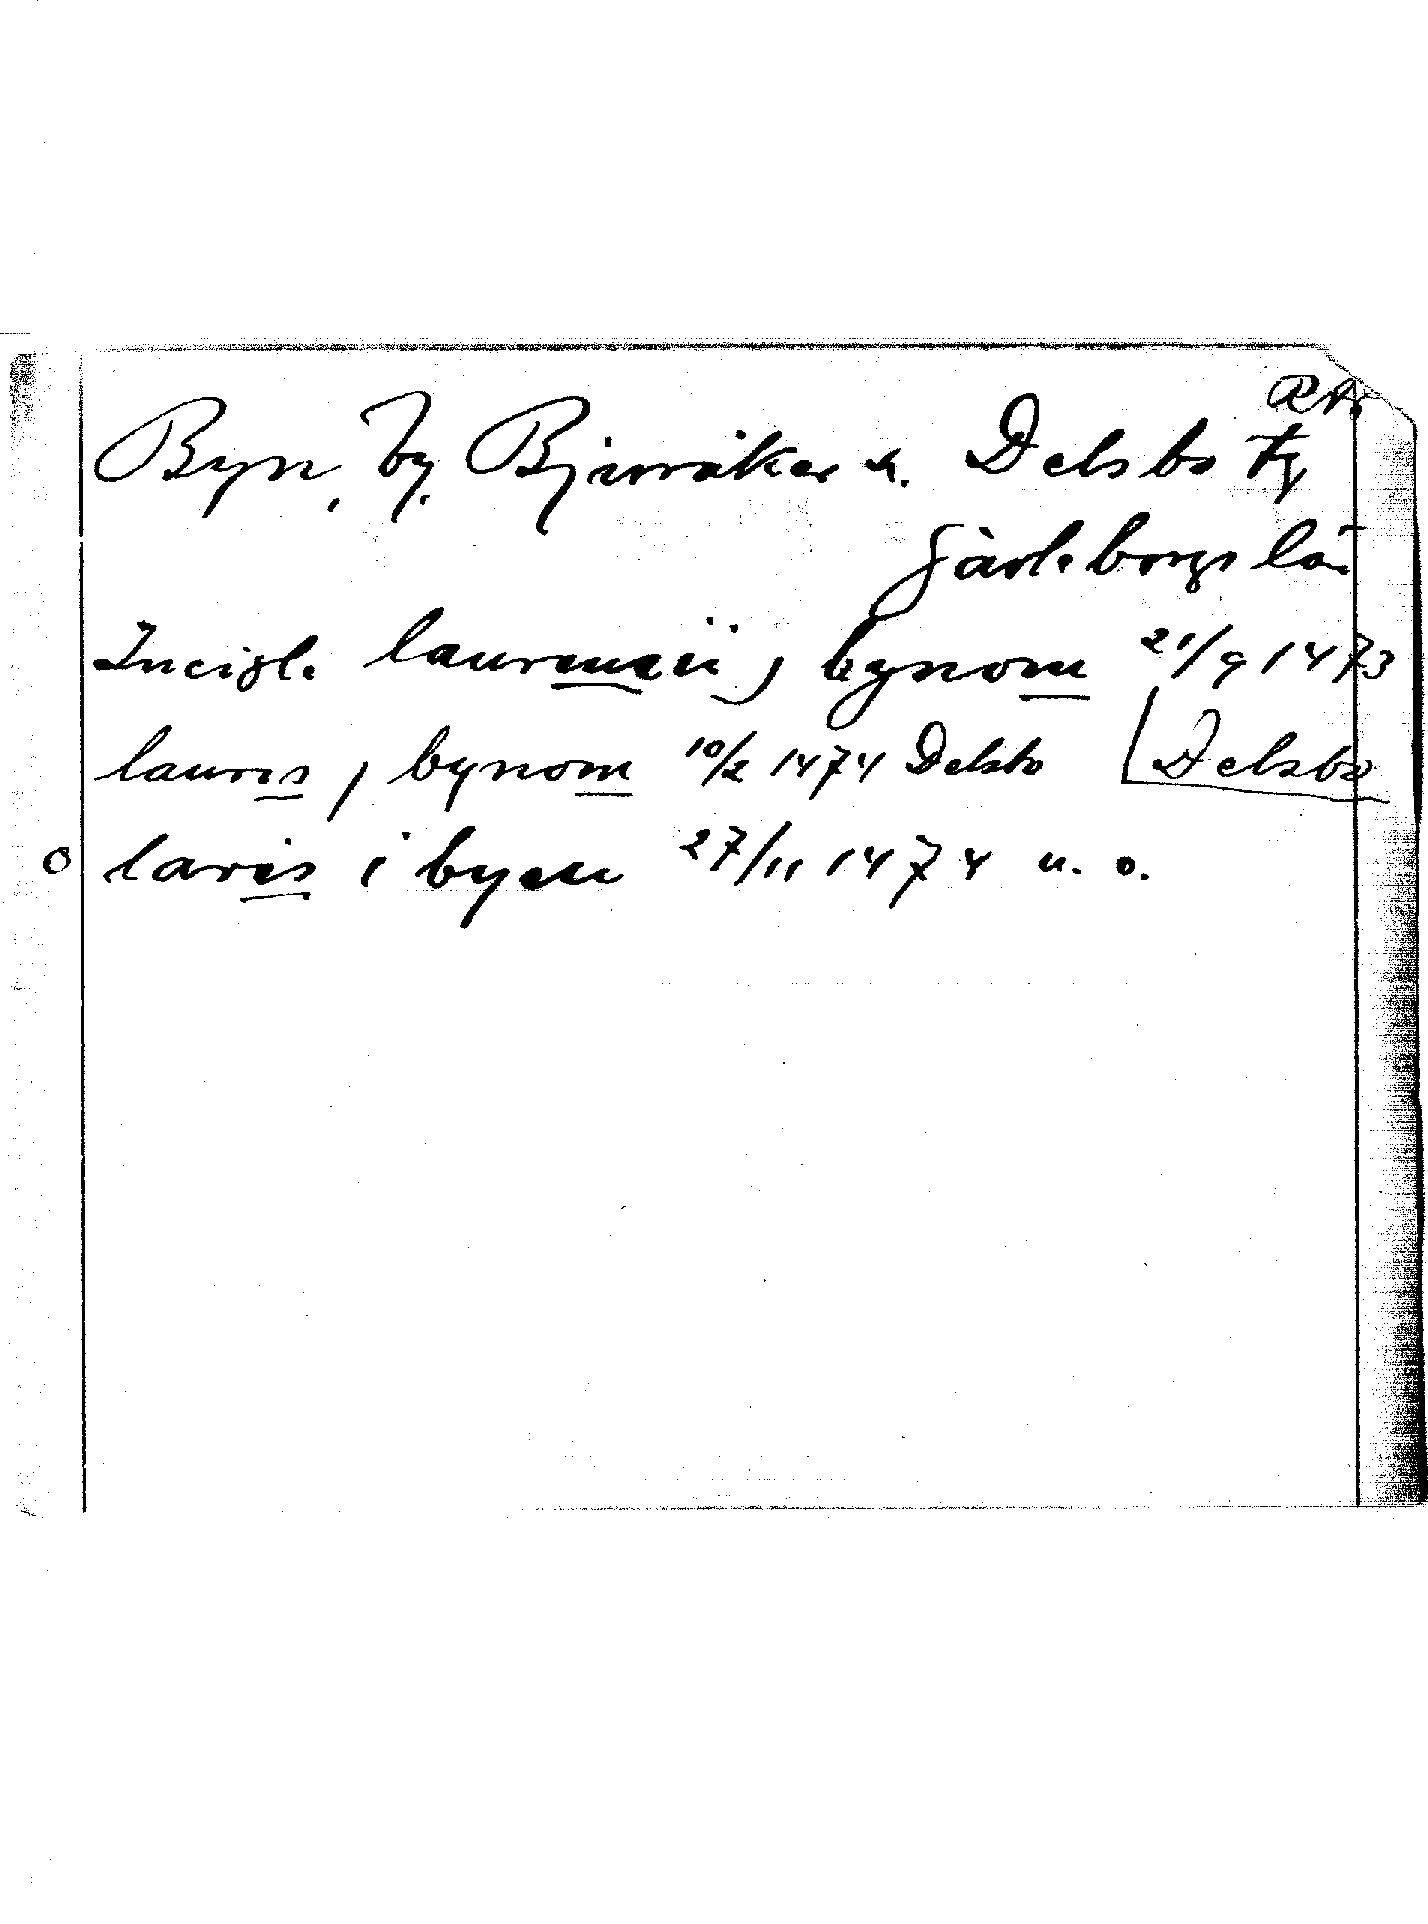 RA.
Byn, by, Bjuråker s. Delsbo tg
Gävleborgs län
Incigl. laurencii j bynom 21/9 1473
Delsbo
lauris j bynom 10/2 1474 Delsbo
o laris i byen 27/11 1474 u. o.